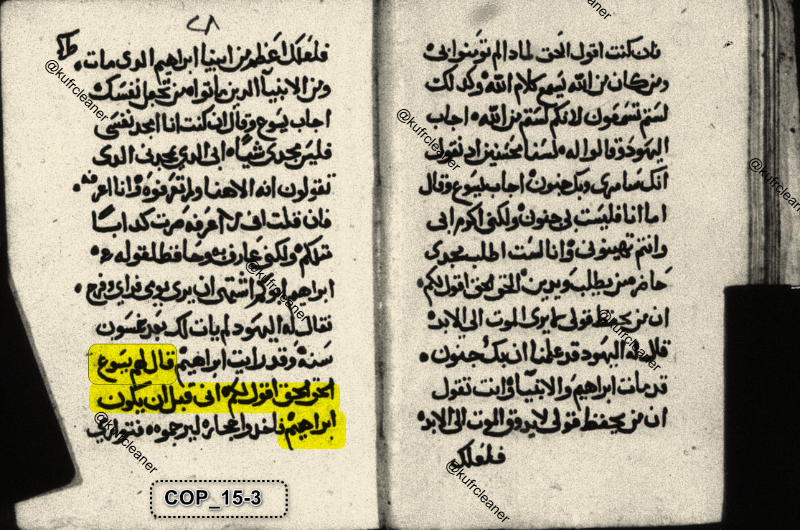 فان كنت اقول الحق لماذا لم تومنوا بى
ومن كان من الله يسمع كلام الله وكذلك
لستم تسمعون لانكم لستم من الله اجاب
اليهود وقالوا له لسنا محسنين اذ نقول
انك سامرى وبك جنون اجاب يسوع وقال
اما انا فليست بى جنون ولكنى اكرم ابى
وانتم تهينونى وانا لست اطلب مجدى
حاضر من يطلب ويدين الحق الحق اقول لكم
ان من يحفظ قولى لا يرى الموت الى الابد
قال له اليهود قد علمنا ان بك جنون
قد مات ابراهيم والانبيا وانت تقول
ان من يحفظ قولى لا يذوق الموت الى الابد
فلعلك
فلعلك اعظم من ابينا ابراهيم الذى مات
ومن الانبيا الذين ماتوا من تجعل نفسك
اجاب يسوع وقال ان كنت انا امجد نفسى
فليس مجدى شيا ابى الذى يمجدنى الذى
تقولون انه الاهنا ولم تعرفوه وانا اعرفه
فان قلت انى لا اعرفه صرت كدابا
مثلكم ولكنى عارف به وحافظ لقوله
ابراهيم ابوكم اشتهى ان يرى يومى فراى وفرح
فقال له اليهود لم يات لك بعد خمسون
سنة وقد رايت ابراهيم قال لهم يسوع
الحق الحق اقول لكم انى قبل ان يكون
ابراهيم فاخذوا حجاره ليرجموه فتوارى
COP_15-3
@kufrcleaner
@kufrcleaner
@kufrcleaner
@kufrcleaner
@kufrcleaner
@kufrcleaner
@kufrcleaner